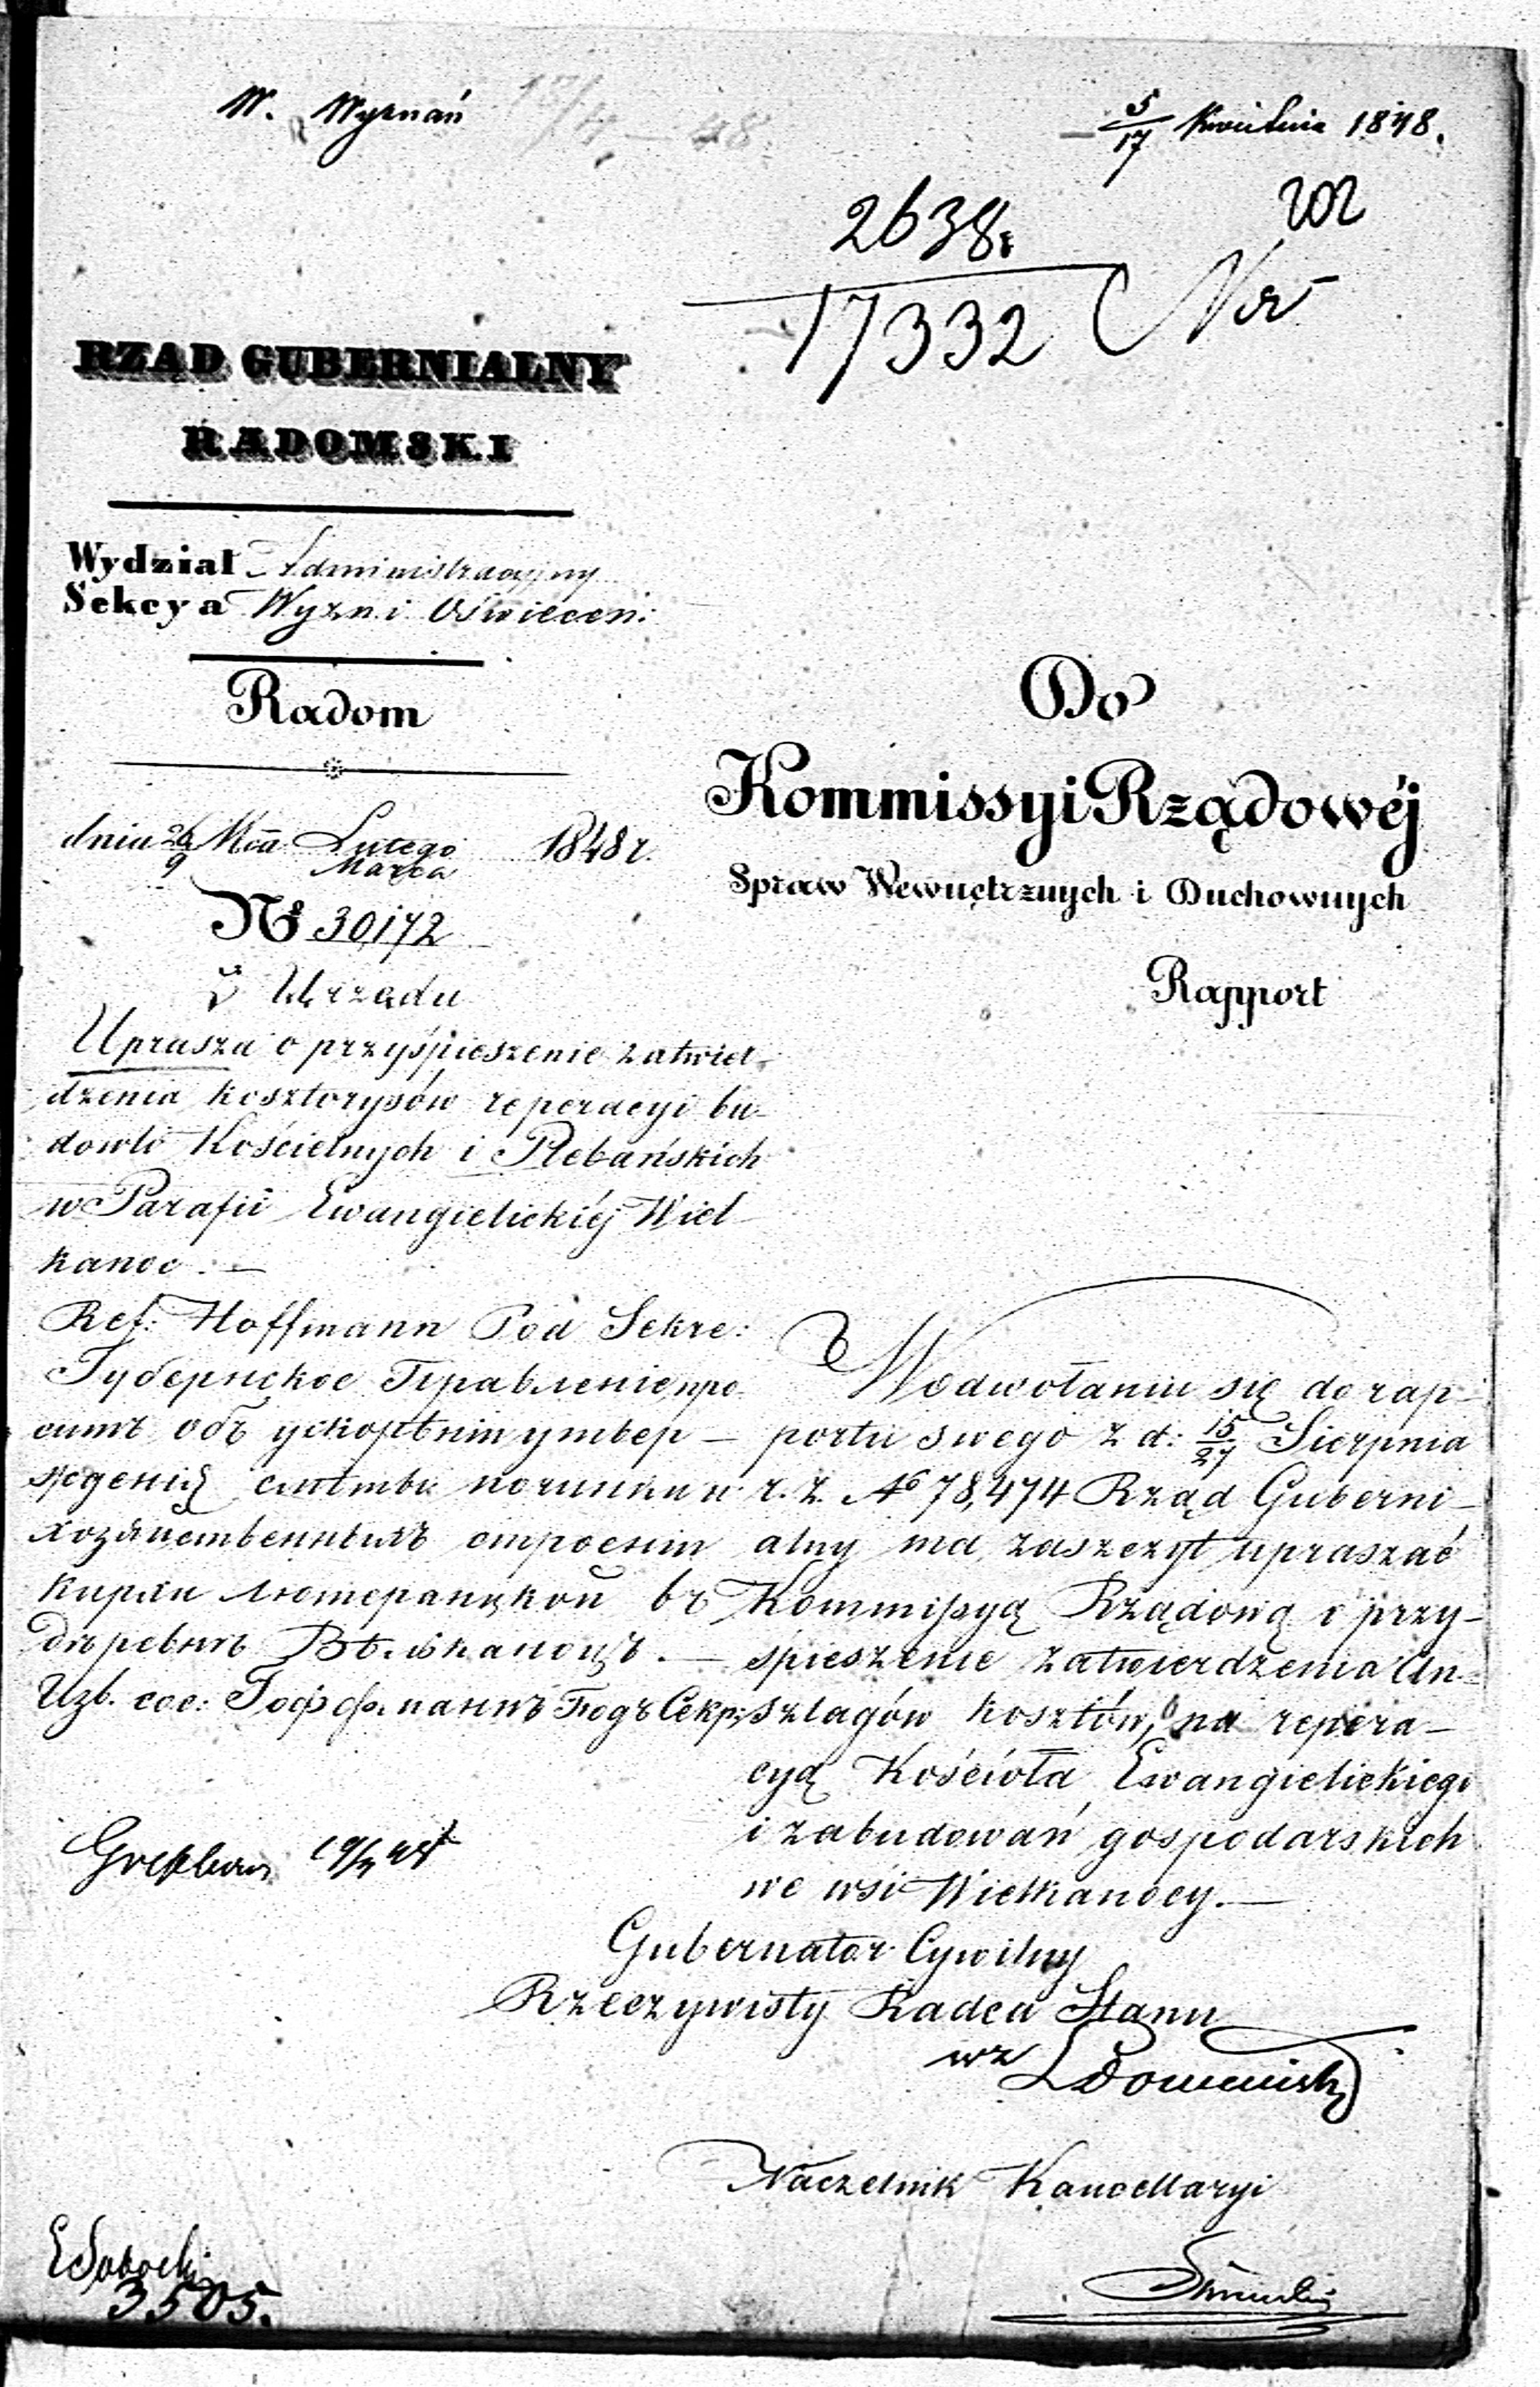 W. Wyznań
5/17 Kwietnia 1848.
202
2638.
17332
RZĄD GUBERNIALNY
RADOMSKI
Wydział Administracyjny
Sekcya Wyzn. i Oświecen:
Radom
dnia 26/9 Mca Lutego/Marca 1848 r.
№ 30,172
z Urzędu
Uprasza o przyśpieszenie zatwier-
dzenia kosztorysów reperacyi bu-
dowli Kościelnych i Plebańskich
w Parafii Ewangielickiéj Wiel-
kanoc.—
Ref: Hoffmann Pod Sekre:
Губернское Правленіе про-
ситъ объ ускореніи утвер-
жденія смѣты починки
хозяйственныхъ строеній
кирхи лютеранской въ
деревнѣ Вѣльканоцъ.—
Изб. сос: Гоффманнъ Подъ Секр:
Do
Kommissyi Rządowéj
Spraw Wewnętrznych i Duchownych
Rapport
W odwołaniu się do rap-
portu swego z d: 15/27 Sierpnia
r. z. № 78,474 Rząd Guberni-
alny ma zaszczyt upraszać
Kommissyą Rządową o przy-
śpieszenie zatwierdzenia An-
szlagów kosztów, na repera-
cyą Kościoła Ewangielickiego
i zabudowań gospodarskich
we wsi Wielkanocy.—
Gubernator Cywilny
Rzeczywisty Radca Stanu
wz
Naczelnik Kancellaryi
3505.